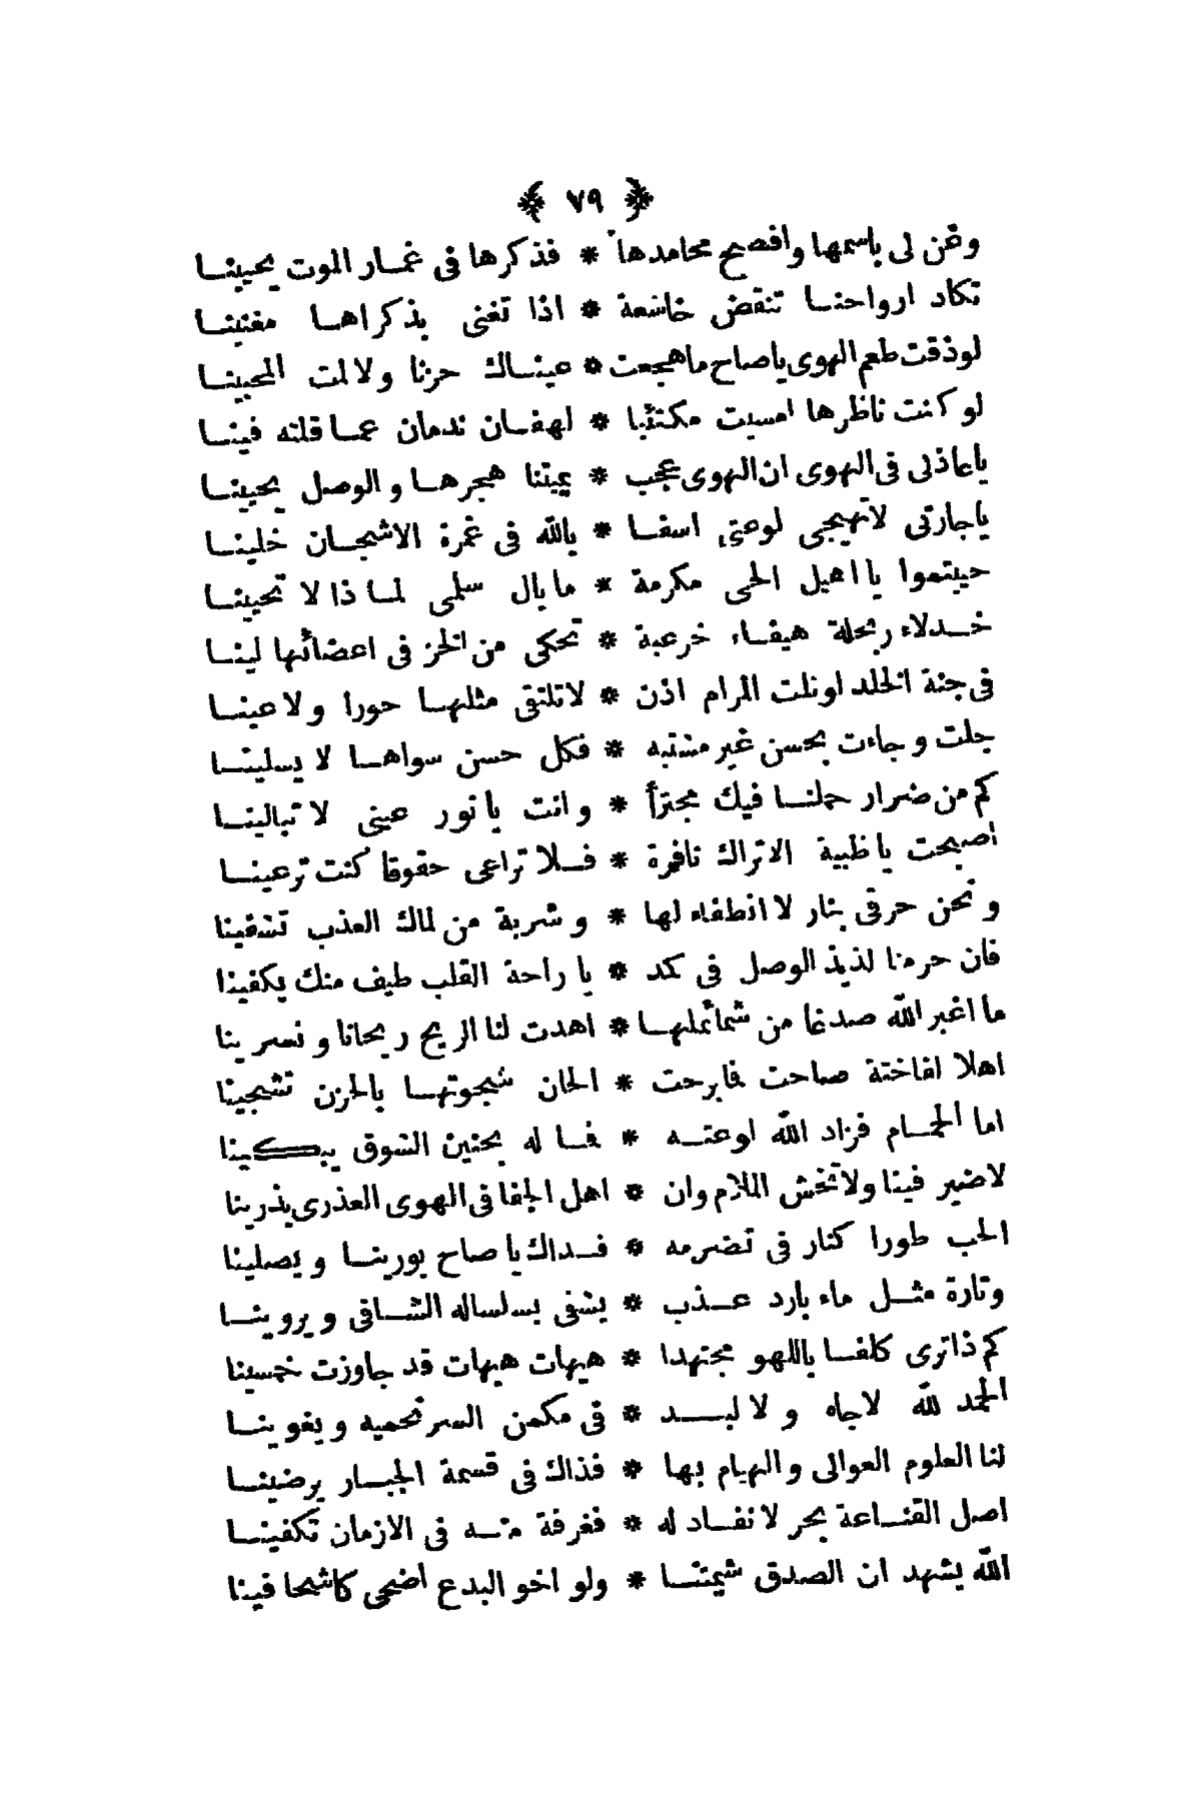 ﴿ ٧٩ ﴾
وغن لى باسمها وافصح محامدها * فذكرها فى غمار الموت يحيينا
تكاد ارواحنا تنقض خاشعة * اذا تغنى بذكراها مغنينا
لوذقت طعم الهوى ياصاح ماهجعت * عيناك حزنا ولالمت المحبينا
لو كنت ناظرها امسيت مكتئبا * لهفان ندمان عما قلته فينا
ياعاذلى فى الهوى ان الهوى عجب * يميتنا هجرها والوصل يحيينا
ياجارتى لاتهيجى لوعتى اسفا * بالله فى غمرة الاشجان خلينا
حييتموا يا اهيل الحى مكرمة * مابال سلمى لماذا لا تحيينا
خدلاء ربحلة هيفاء خرعبة * تحكى من الخز فى اعضائها لينا
فى جنة الخلد لونلت المرام اذن * لاتلتقى مثلها حورا ولا عينا
جلت وجاءت بحسن غير مشتبه * فكل حسن سواها لا يسلينا
كم من ضرار حملنا فيك مجتزأ * وانت يا نور عينى لا تبالينا
اصبحت يا ظبية الاتراك نافرة * فلا تراعى حقوقا كنت ترعينا
ونحن حرقى بنار لا انطفاء لها * وشربة من لماك العذب تشفينا
فان حرمنا لذيذ الوصل فى كمد * يا راحة القلب طيف منك يكفينا
ما اغبر الله صدغا من شمائلها * اهدت لنا الريح ريحانا ونسرينا
اهلا لفاختة صاحت فما برحت * الحان شجوتها بالحزن تشجينا
اما الحمام فزاد الله لوعته * فما له بحنين الشوق يبكينا
لاضير فينا ولاتخش الملام وان * اهل الجفا فى الهوى العذرى يذرينا
الحب طورا كنار فى تضرمه * فداك يا صاح يورينا ويصلينا
وتارة مثل ماء بارد عذب * يشفى بسلساله الشافى ويروينا
كم ذاترى كلفا باللهو مجتهدا * هيهات هيهات قد جاوزت خمسينا
الحمد لله لاجاه ولا لبد * فى مكمن السر تحميه ويغوينا
لنا العلوم العوالى والهيام بها * فذاك فى قسمة الجبار يرضينا
اصل القناعة بحر لا نفاد له * فغرفة منه فى الازمان تكفينا
الله يشهد ان الصدق شيمتنا * ولو اخو البدع اضحى كاشحا فينا